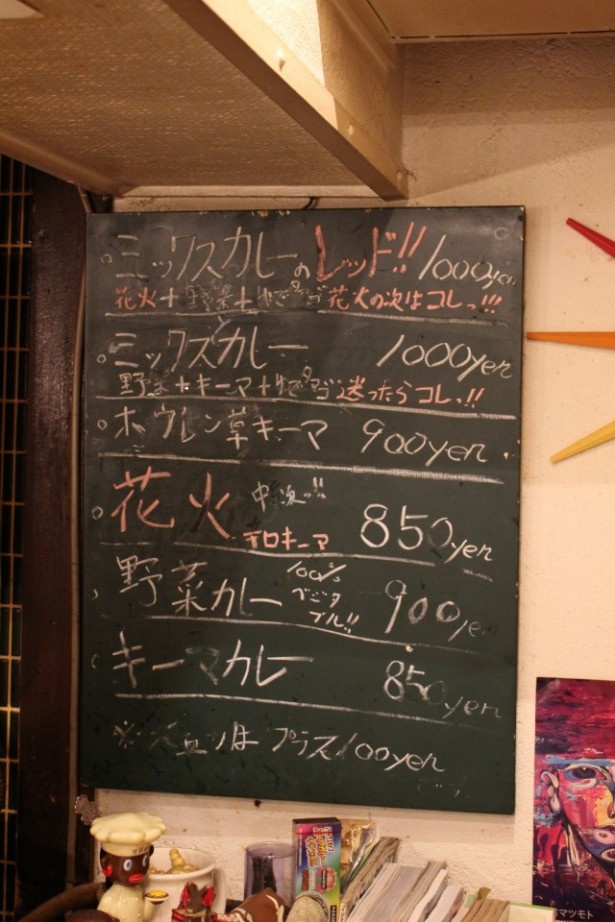 ミックスカレーのレッド!! 1000yen
花火+野菜+ゆでタマゴ 花火の次はコレっ!!!
ミックスカレー 1000yen
野菜+キーマ+ゆでタマゴ 迷ったらコレっ!!
ホウレン草キーマ 900yen
花火 850yen
辛口キーマ
野菜カレー 100% ベジタブル!! 900ye
キーマカレー 850yen
※ 大皿は プラス100yen
マツモト